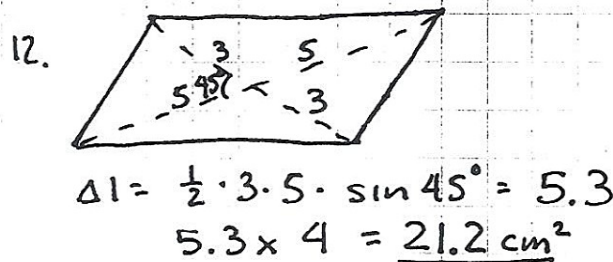 12.
3 5
5 45° 3
Δ1 = 1/2 · 3 · 5 · sin 45° = 5.3
5.3 x 4 = 21.2 cm²